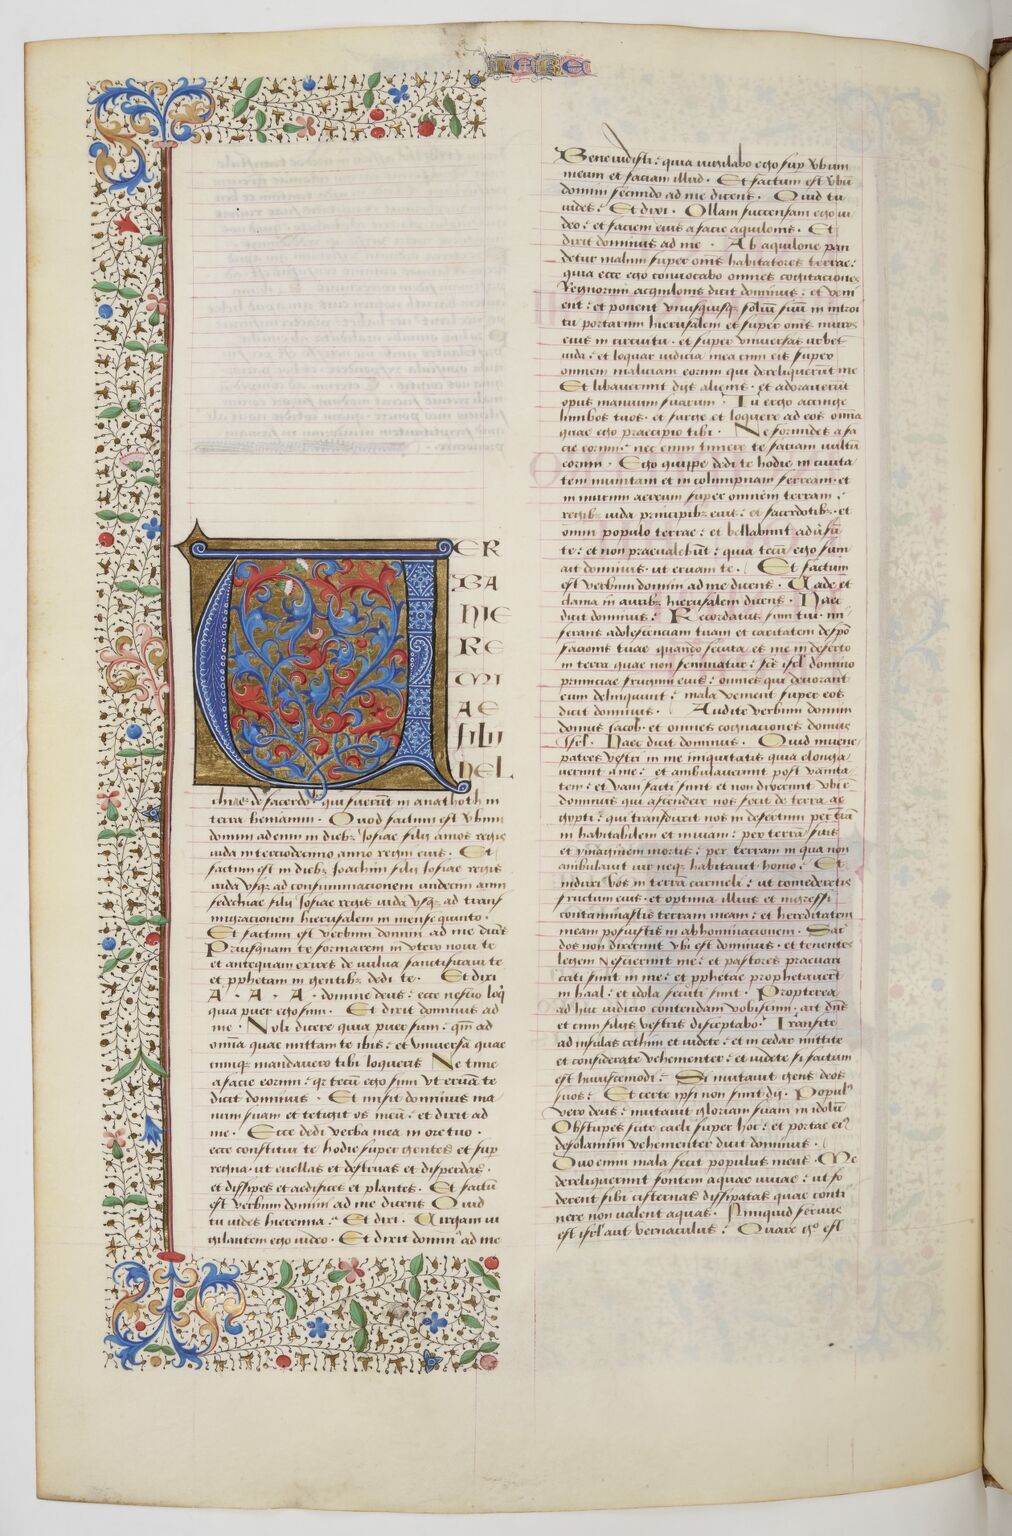 IERE
VER
BA
HIE
RE
MI
AE
filii
hEL
chiae de sacerdo. qui fuerūt in anathoth in
terra beniamin. Quod factum est v̄bum
domini ad eum in dieb; Josiae filii amos regis
iuda in terciodecimo anno regni eius. Et
factum est in dieb; Joachim filii Josiae regis
iuda vsq; ad consummacionem vndecim anni
sedechiae filii Josiae regis iuda vsq; ad trans
migracionem hierusalem in mense quinto.
Et factum est verbum domini ad me dicēs
Priusquam te formarem in vtero noui te
et antequam exires de vulua sanctificaui te
et pphetam in gentib; dedi te. Et dixi
A. A. A. domine deus: ecce nescio loq̄
quia puer ego sum. Et dixit dominus ad
me. Noli dicere quia puer sum: qm̄ ad
omīa quae mittam te ibis: et vniuersa quae
cumq; mandauero tibi loqueris Ne timeas
a facie eorum: qr tecū ego sum vt eruā te
dicit dominus. Et misit dominus ma
num suam et tetigit os meū: et dixit ad
me. Ecce dedi verba mea in ore tuo.
ecce constitui te hodie super gentes et sup
regna. ut euellas et destruas et disperdas.
et dissipes et aedifices et plantes. Et factū
est verbum domini ad me dicens Quid
tu uides hieremia: Et dixi. Uirgam ui
gilantem ego uideo. Et dixit domin' ad me
Bene uidisti: quia uigilabo ego sup v̄bum
meum et faciam illud. Et factum est v̄bū
domini secundo ad me dicens. Quid tu
uides: Et dixi. Ollam succensam ego ui
deo: et faciem eius a facie aquilonis. Et
dixit dominus ad me. Ab aquilone pan
detur malum super om̄s habitatores terrae:
quia ecce ego conuocabo omnes cognaciones
Regnorum aquilonis dicit dominus: et veni
ent: et ponent vnusquisq; soliū suū in introi
tu portarum hierusalem et super om̄s muros
eius in circuitu. et super vniuersas urbes
iuda: et loquar iudicia mea cum eis super
omnem maliciam eorum qui dereliquerūt me
Et libauerunt dijs alienis. et adorauerūt
opus manuum suarum. Tu ergo accinge
lumbos tuos. et surge et loquere ad eos omnia
quae ego praecipio tibi. Ne formides a fa
cie eorum: nec enim timere te faciam uultū
eorum. Ego quippe dedi te hodie in ciuita
tem munitam et in columpnam ferream. et
in murum aereum super omnem terram:
regib; iuda principib; eius: et sacerdotib;. et
omni populo terrae: et bellabunt aduersū
te: et non praeualebūt: quia tecū ego sum
ait dominus. ut eruam te. Et factum
est verbum domini ad me dicens. Uade et
clama in aurib; hierusalem dicens. Haec
dicit dominus: Recordatus sum tui. mi
serans adolescenciam tuam et caritatem despō
sacionis tuae quando secuta es me in deserto
in terra quae non seminatur: sc̄s isrl̄ domino
primiciae frugum eius: omnes qui deuorant
eum delinquunt: mala venient super eos
dicit dominus. Audite verbum domini
domus Jacob. et omnes cognaciones domus
Jsrl̄. Haec dicit dominus. Quid inuene
patres vestri in me iniquitatis quia elonga
uerunt a me: et ambulauerunt post vanita
tem: et vani facti sunt et non dixerunt vbi ē
dominus qui ascendere nos fecit de terra ae
gypti: qui transduxit nos in desertum per terrā
inhabitabilem et inuiam: per terrā sitis
et ymaginem mortis: per terram in qua non
ambulauit uir neq; habitauit homo: Et
induxi vos in terrā carmeli: ut comederetis
fructum eius. et optima illius et ingressi
contaminastis terram meam: et hereditatem
meam posuistis in abhominacionem. Sacer
dos non dixerunt vbi est dominus. et tenentes
legem Nescierunt me: et pastores praeuari
cati sunt in me: et pphetae prophetauert
in baal: et idola secuti sunt. Propterea
ad huc iudicio contendam vobiscum. ait dn̄s
et cum filijs vestris disceptabo: Transite
ad insulas cethim et uidete: et in cedar mittite
et considerate vehementer: et uidete si factum
est huiuscemodi: Si mutauit gens deos
suos: Et certe ipsi non sunt dij. Popul'
vero deus: mutauit gloriam suam in idolū
Obstupescite caeli super hoc: et portae ei'
desolamini vehementer dicit dominus.
Duo enim mala fecit populus meus. Me
dereliquerunt fontem aquae uiuae: ut fo
derent sibi cisternas dissipatas quae conti
nere non ualent aquas. Numquid seruus
est isrl̄ aut vernaculus: Quare g° est